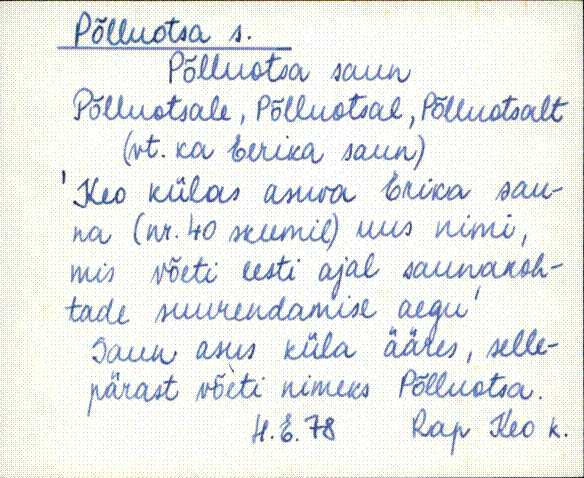 Põlluotsa s.
Põlluotsa saun
Põlluotsale, Põlluotsal, Põlluotsalt
(vt. ka Eerika saun)
'Keo külas asuva Erika sau-
na (nr. 40 skeemil) uus nimi,
mis võeti eesti ajal saunakoh-
tade suurendamise aegu'
Saun asus küla ääres, selle-
pärast võeti nimeks Põlluotsa.
H.E. 78 Rap Keo k.